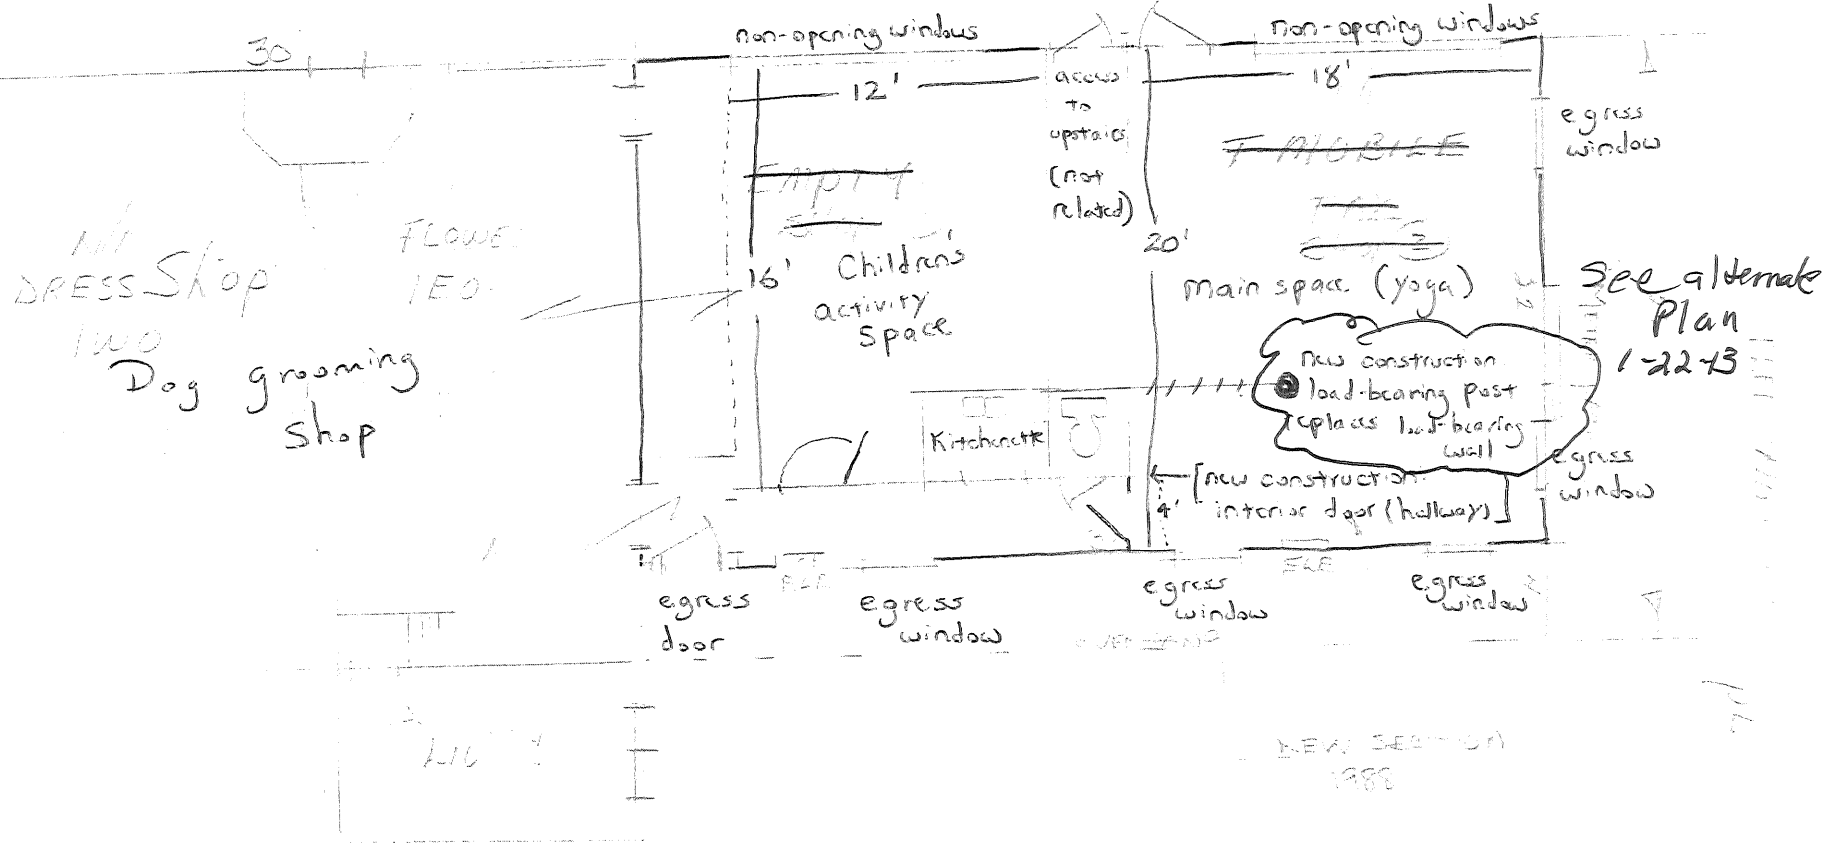 30
non-opening windows
non-opening windows
12'
access
to
upstairs
(not
related)
18'
egress
window
T-MOBILE
EMPTY
DRESS Shop
TWO
Dog grooming
Shop
16'
Children's
activity
space
20'
main space (yoga)
See alternate
Plan
1-22-13
new construction
load-bearing post
replaces load-bearing
wall
Kitchenette
[new construction
interior door (hallway)]
4'
egress
window
egress
door
egress
window
egress
window
egress
window
ELE
NEW SECTION
1988